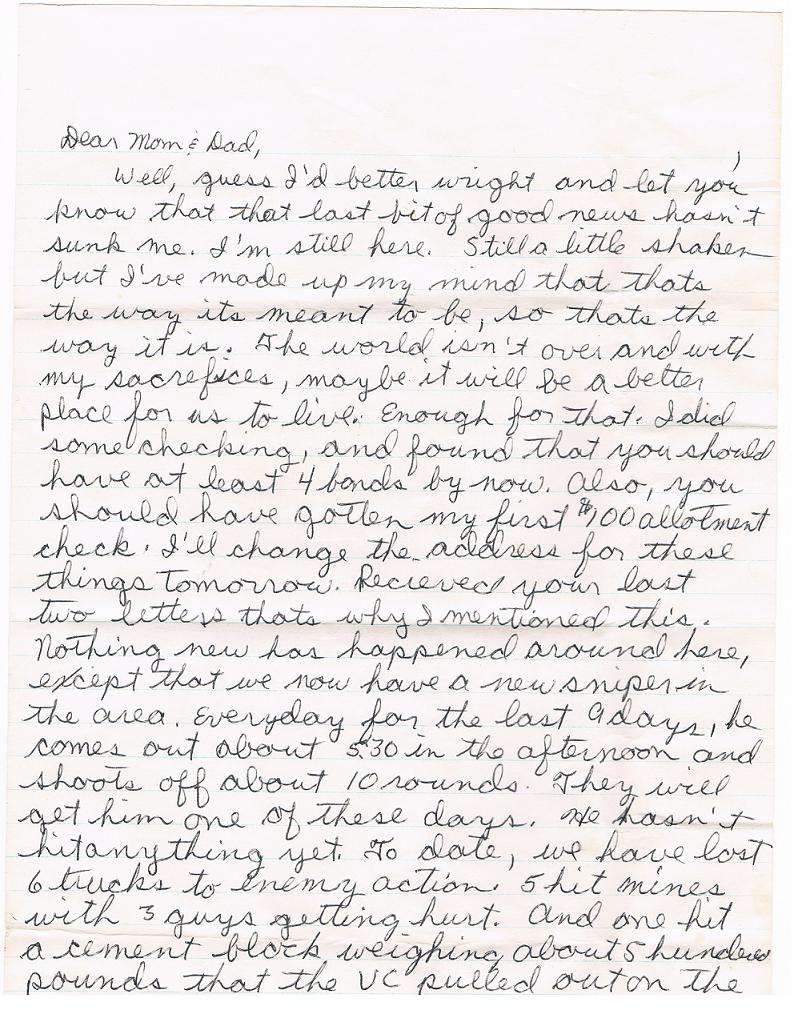 Dear Mom & Dad,
Well, guess I'd better wright and let you
know that that last bit of good news hasn't
sunk me. I'm still here. Still a little shaken
but I've made up my mind that thats
the way its meant to be, so thats the
way it is. The world isn't over and with
my sacrefices, maybe it will be a better
place for us to live. Enough for that. I did
some checking, and found that you should
have at least 4 bonds by now. Also, you
should have gotten my first $100 allotment
check. I'll change the address for these
things tomorrow. Recieved your last
two letters thats why I mentioned this.
Nothing new has happened around here,
except that we now have a new sniper in
the area. Everyday for the last 9 days, he
comes out about 5:30 in the afternoon and
shoots off about 10 rounds. They will
get him one of these days. He hasn't
hit anything yet. To date, we have lost
6 trucks to enemy action. 5 hit mines
with 3 guys getting hurt. And one hit
a cement block weighing about 5 hundred
pounds that the VC pulled out on the